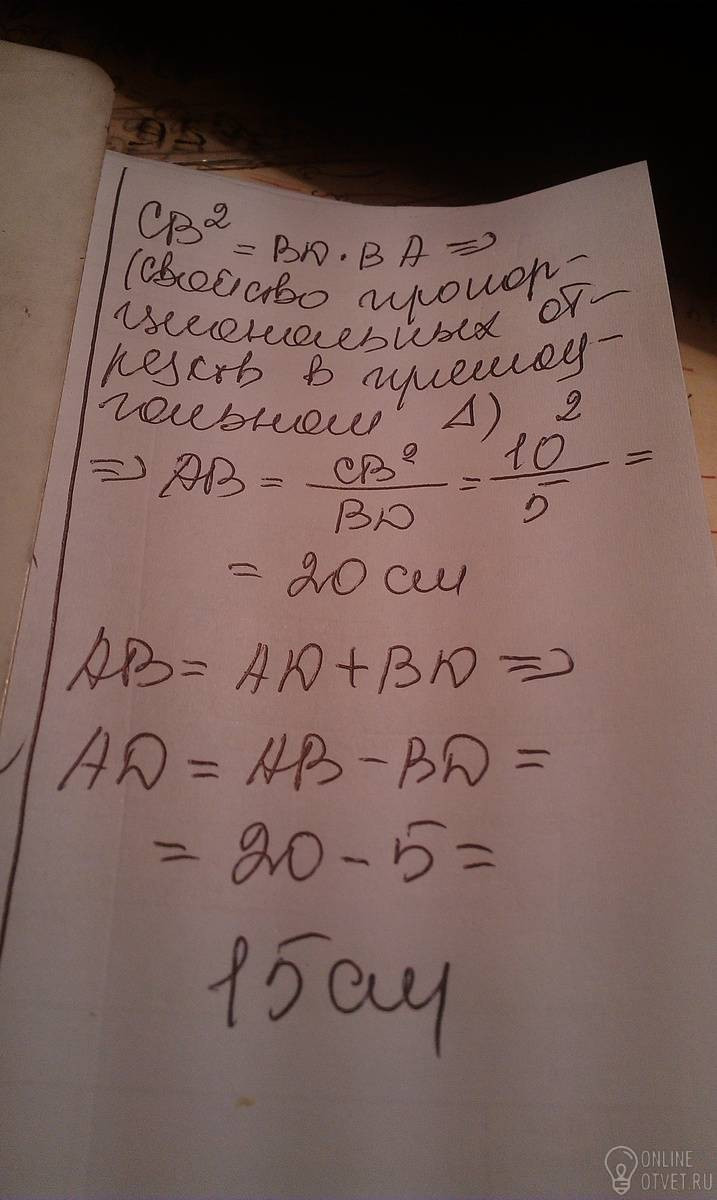 CB² = BD · BA ⇒
(свойство пропор-
циональных от-
резков в прямоу-
гольном Δ)
⇒ AB = CB²/BD = 10²/5 =
= 20 см
AB = AD + BD ⇒
AD = AB − BD =
= 20 − 5 =
15 см
ONLINE
OTVET.RU